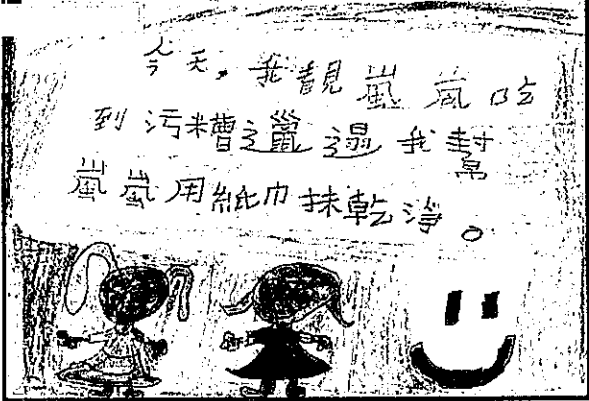 今天，我覩嵐嵐吃
到污糟邋遢我幫
嵐嵐用紙巾抹乾淨。